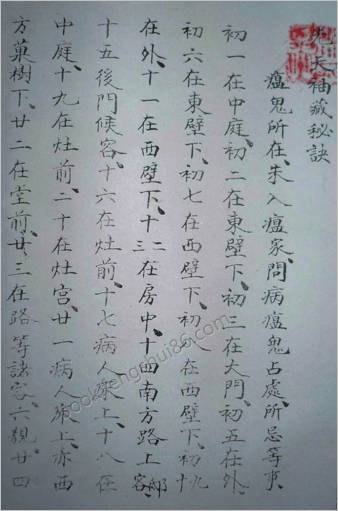 天袖藏秘訣
瘟鬼所在、未入瘟家、問病瘟鬼占處、所忌等事、
初一在中庭、初二在東壁下、初三在大門、初五在外、
初六在東壁下、初七在西壁下、初八在西壁下、初九十
在外、十一在西壁下、十二三在房中、十四南方路上客邸
十五後門候客、十六在灶前、十七病人床上、十八在
中庭、十九在灶前、二十在灶宮、廿一病人床上、亦西
方菓樹下、廿二在堂前、廿三在路等諸客六親、廿四